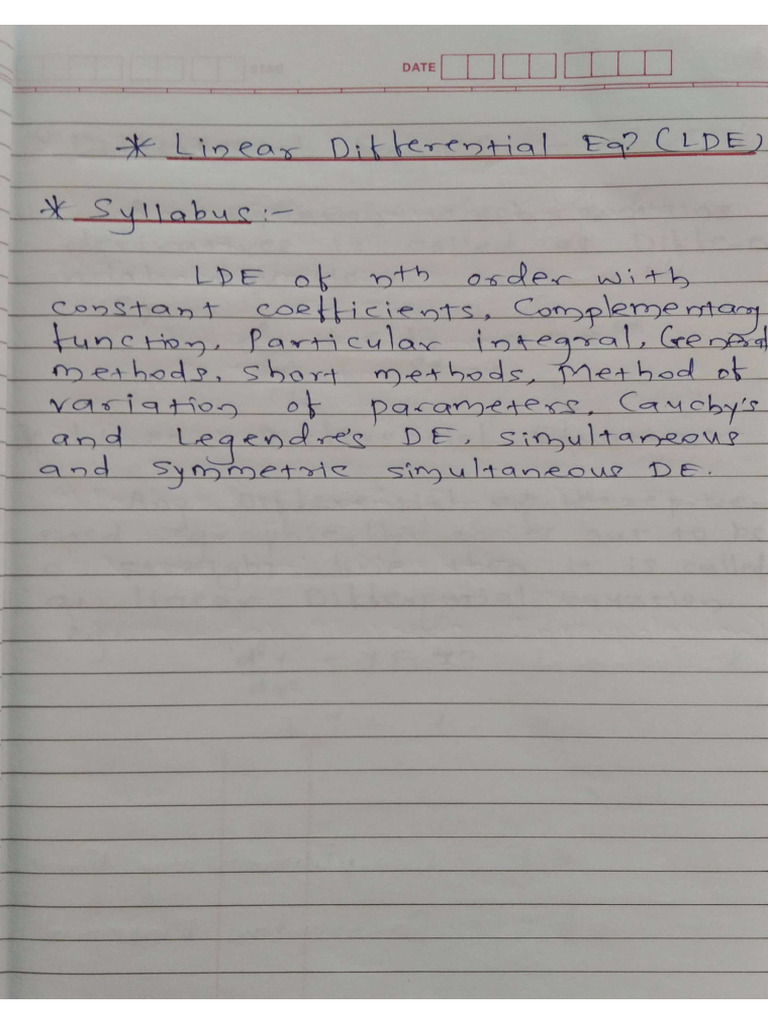 DATE
* Linear Differential Eqn (LDE)
* Syllabus :-
LDE of nth order with
constant coefficients, Complementary
function, Particular integral, General
methods, short methods, Method of
variation of parameters, Cauchy's
and Legendre's DE, simultaneous
and symmetric simultaneous DE.